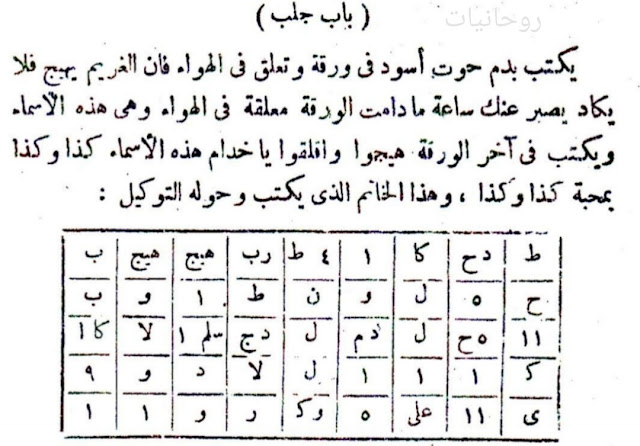 روحانيات
( باب جلب )
يكتب بدم حوت أسود فى ورقة وتعلق فى الهواء فان الغريم يهيج فلا
يكاد يصبر عنك ساعة مادامت الورقة معلقة فى الهواء وهى هذه الأسماء
ويكتب فى آخر الورقة هيجوا واقلقوا يا خدام هذه الأسماء كذا وكذا
بمحبة كذا وكذا ، وهذا الخاتم الذى يكتب وحوله التوكيل :
ط دح كا ١ ٤ ط رب هيج هيج ب
ح ٥ ل و ن ط ١ و ب
١١ ٥ح ل دم ل دج سلم ١ لا كا١
ك ١ ١ ١ ل لا د و ٩
ى ١١ على ٥ وك ر و ١ ١